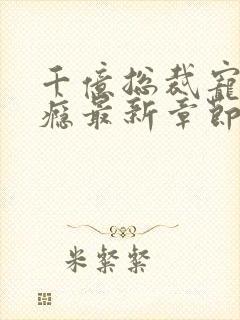 千億總裁寵
癮最新章節
米粲粲